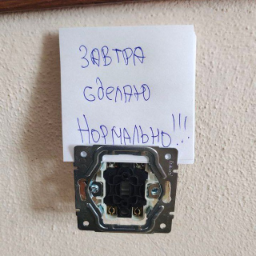 ЗАВТРА
сделаю
НОРМАЛЬНО!!!